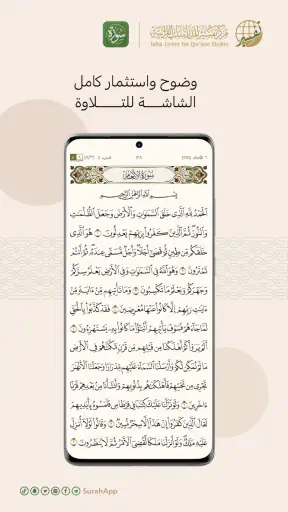 مركز تفسير للدراسات القرآنية
Tafsir Center for Qur'anic Studies
سورة
وضوح واستثمار كامل
الشاشـــة للتـــــلاوة
١٢٨
سُورَةُ الأَنْعَامِ
بِسْمِ اللَّهِ الرَّحْمَٰنِ الرَّحِيمِ
ٱلْحَمْدُ لِلَّهِ ٱلَّذِي خَلَقَ ٱلسَّمَٰوَٰتِ وَٱلْأَرْضَ وَجَعَلَ ٱلظُّلُمَٰتِ
وَٱلنُّورَ ثُمَّ ٱلَّذِينَ كَفَرُوا۟ بِرَبِّهِمْ يَعْدِلُونَ ١ هُوَ ٱلَّذِي
خَلَقَكُم مِّن طِينٍ ثُمَّ قَضَىٰٓ أَجَلًا وَأَجَلٌ مُّسَمًّى عِندَهُۥ ثُمَّ أَنتُمْ
تَمْتَرُونَ ٢ وَهُوَ ٱللَّهُ فِي ٱلسَّمَٰوَٰتِ وَفِي ٱلْأَرْضِ يَعْلَمُ سِرَّكُمْ
وَجَهْرَكُمْ وَيَعْلَمُ مَا تَكْسِبُونَ ٣ وَمَا تَأْتِيهِم مِّنْ ءَايَةٍ مِّنْ
ءَايَٰتِ رَبِّهِمْ إِلَّا كَانُوا۟ عَنْهَا مُعْرِضِينَ ٤ فَقَدْ كَذَّبُوا۟ بِٱلْحَقِّ
لَمَّا جَآءَهُمْ فَسَوْفَ يَأْتِيهِمْ أَنۢبَٰٓؤُا۟ مَا كَانُوا۟ بِهِۦ يَسْتَهْزِءُونَ ٥
أَلَمْ يَرَوْا۟ كَمْ أَهْلَكْنَا مِن قَبْلِهِم مِّن قَرْنٍ مَّكَّنَّٰهُمْ فِي ٱلْأَرْضِ
مَا لَمْ نُمَكِّن لَّكُمْ وَأَرْسَلْنَا ٱلسَّمَآءَ عَلَيْهِم مِّدْرَارًا وَجَعَلْنَا ٱلْأَنْهَٰرَ
تَجْرِي مِن تَحْتِهِمْ فَأَهْلَكْنَٰهُم بِذُنُوبِهِمْ وَأَنشَأْنَا مِنۢ بَعْدِهِمْ قَرْنًا
ءَاخَرِينَ ٦ وَلَوْ نَزَّلْنَا عَلَيْكَ كِتَٰبًا فِي قِرْطَاسٍ فَلَمَسُوهُ بِأَيْدِيهِمْ
لَقَالَ ٱلَّذِينَ كَفَرُوٓا۟ إِنْ هَٰذَآ إِلَّا سِحْرٌ مُّبِينٌ ٧ وَقَالُوا۟ لَوْلَآ أُنزِلَ
عَلَيْهِ مَلَكٌ وَلَوْ أَنزَلْنَا مَلَكًا لَّقُضِيَ ٱلْأَمْرُ ثُمَّ لَا يُنظَرُونَ ٨
SurahApp